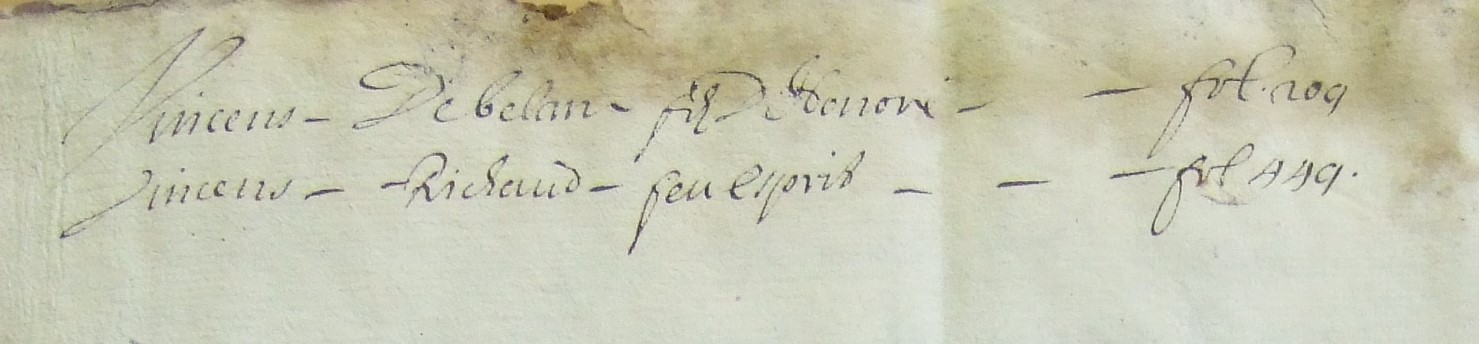 Vincens – Debelan – fil D'Honore – – fol. 209
Vincens – Richaud – feu esprit – – – fol 449.